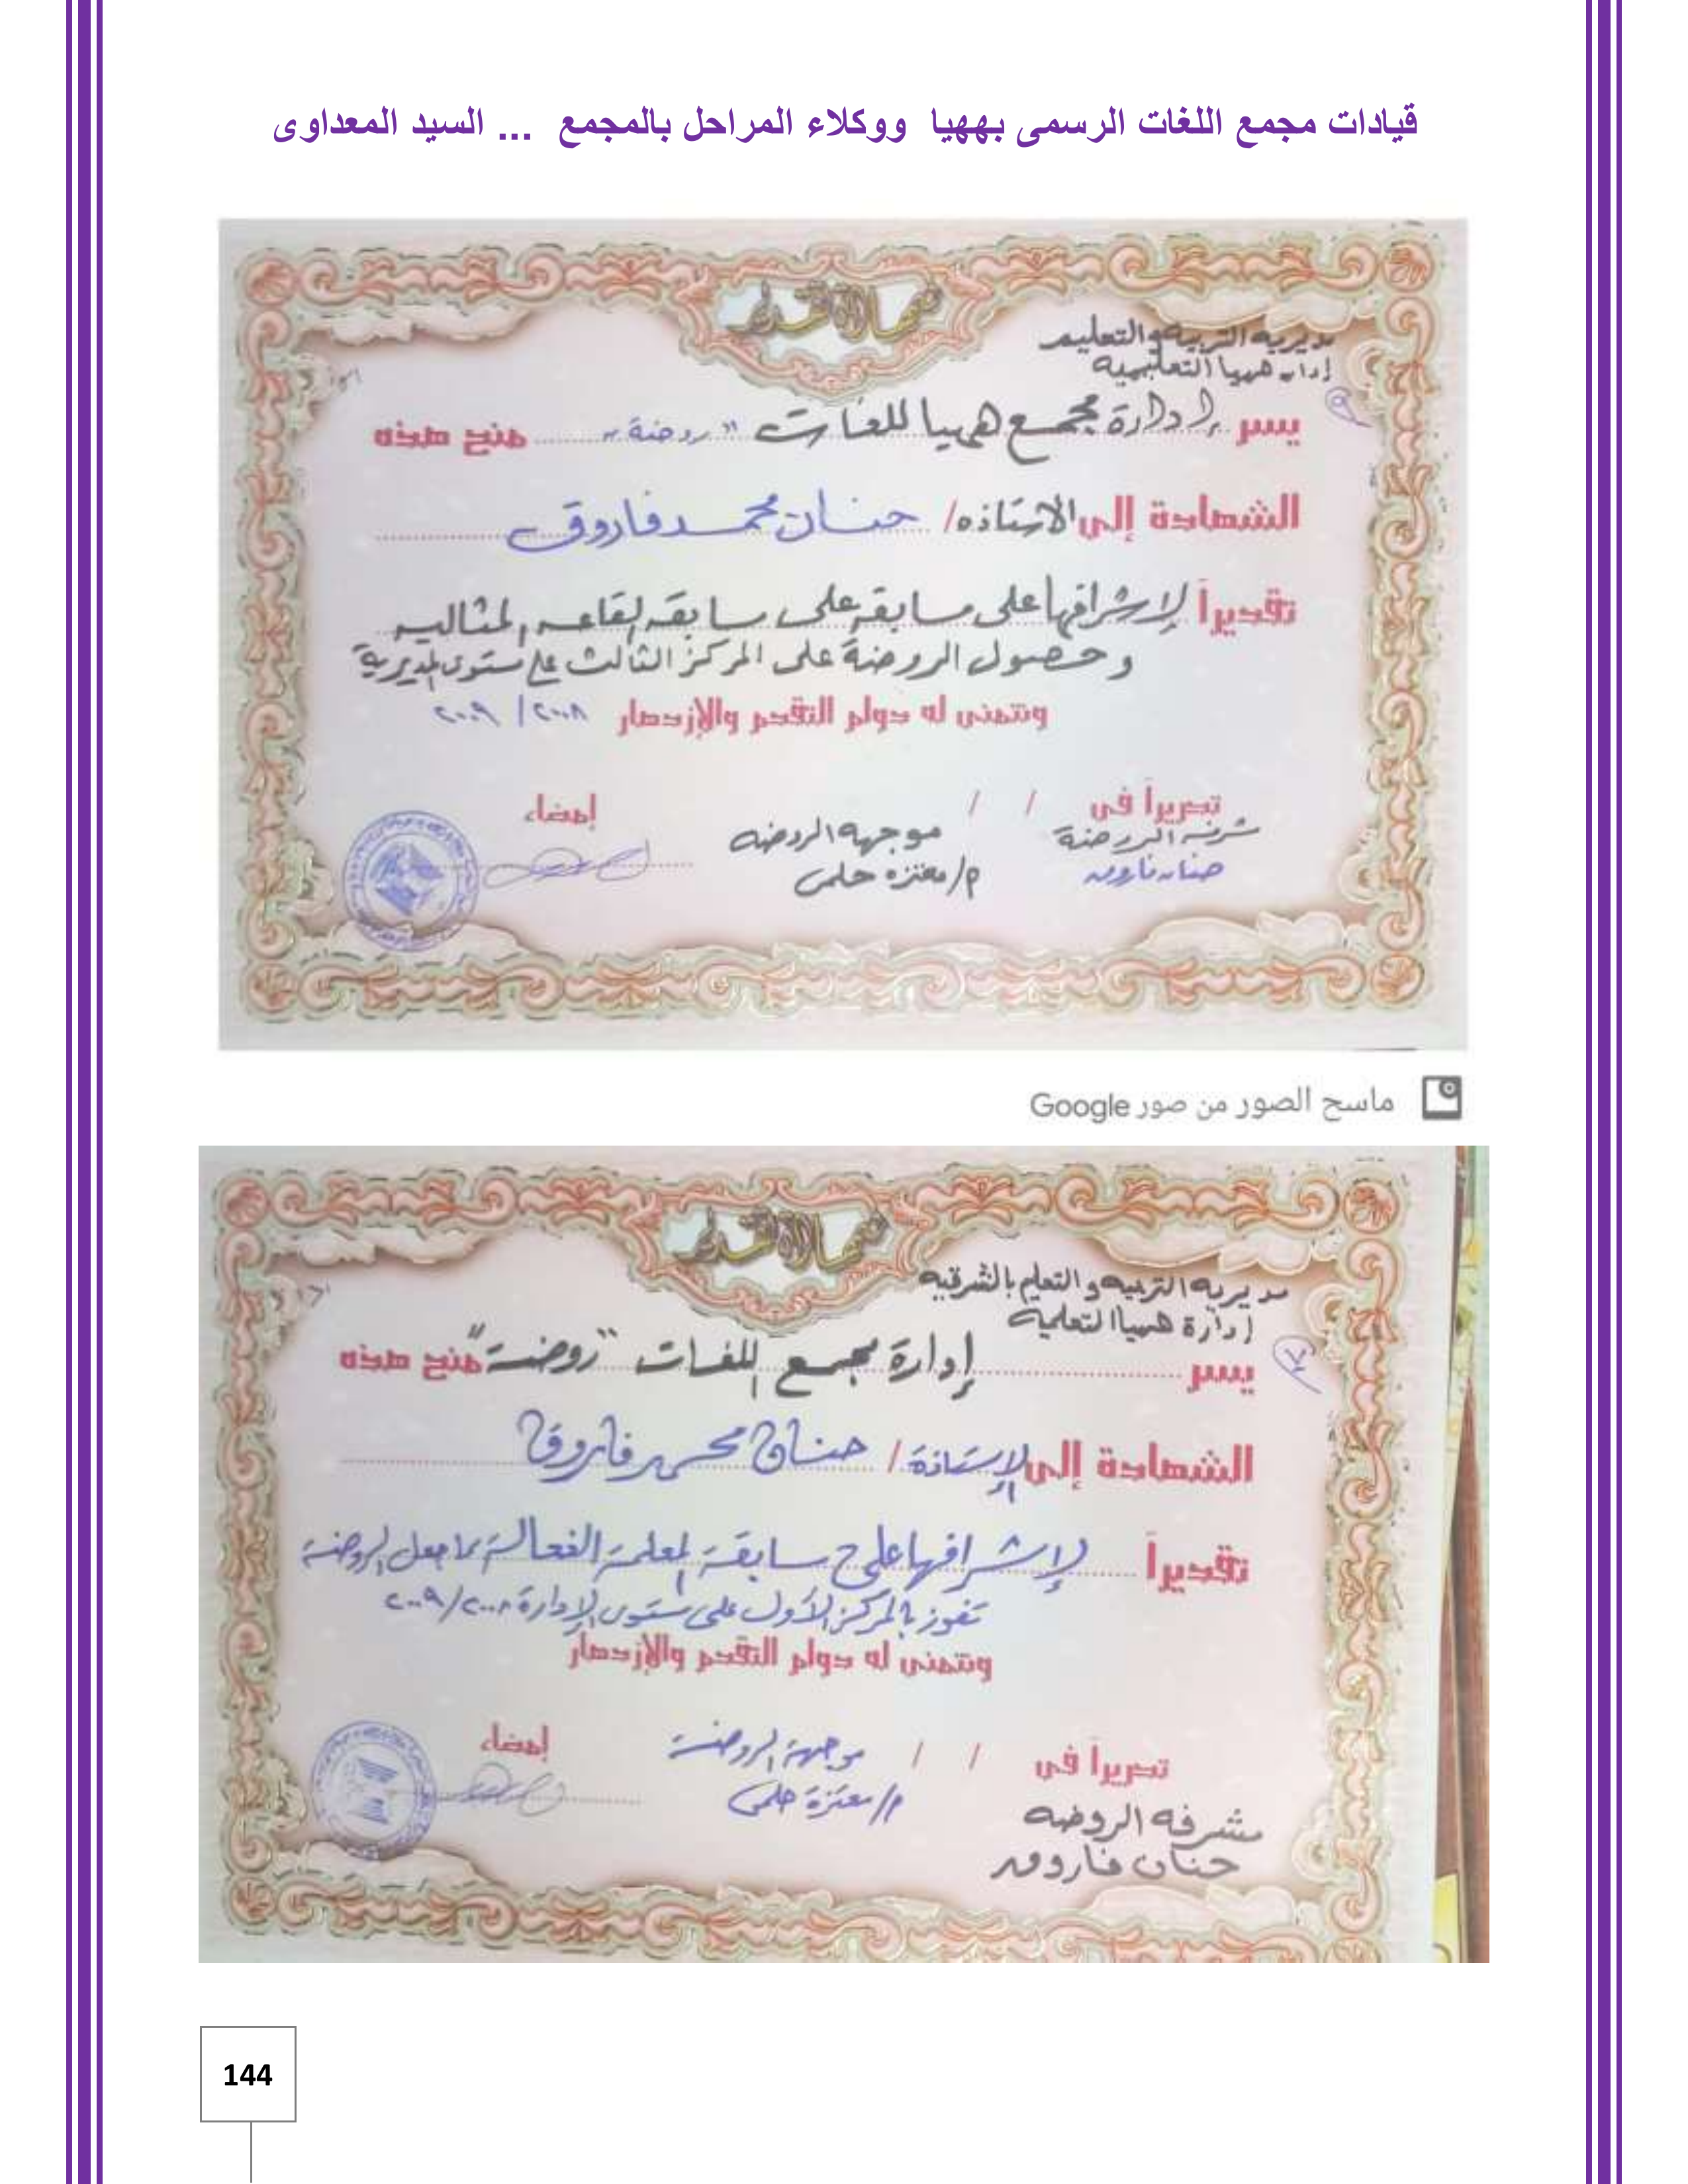 قيادات مجمع اللغات الرسمى بههيا ووكلاء المراحل بالمجمع ... السيد المعداوى
شهادة تقدير
مديرية التربيه والتعليم
إدارة ههيا التعليمية
يسر إدارة مجمع ههيا للغات "روضة" منح هذه
الشهادة إلى الاستاذه/ حنان محمد فاروق
تقديراً لإشرافها على مسابقة على سابقة لقاعه المثاليه
وحصول الروضة على المركز الثالث على مستوى المديرية
ونتمنى له دوام التقدم والإزدهار ٢٠٠٨/ ٢٠٠٩
تحريراً فى / / إمضاء
مشرفة الروضة موجهه الروضه
حنان فاروق م/ معتزه حلمى
ماسح الصور من صور Google
شهادة تقدير
مديرية التربيه والتعليم بالشرقيه
إدارة ههيا التعلمية
يسر إدارة مجمع اللغات "روضة" منح هذه
الشهادة إلى الإستاذة/ حنان محمد فاروق
تقديراً لإشرافها على مسابقة المعلمة الفعالة مما جعل الروضة
تفوز بالمركز الأول على مستوى الإدارة ٢٠٠٨/ ٢٠٠٩
ونتمنى له دوام التقدم والإزدهار
تحريراً فى / / موجهة الروضة إمضاء
مشرفه الروضه م/ معتزة حلمى
حنان فاروق
144